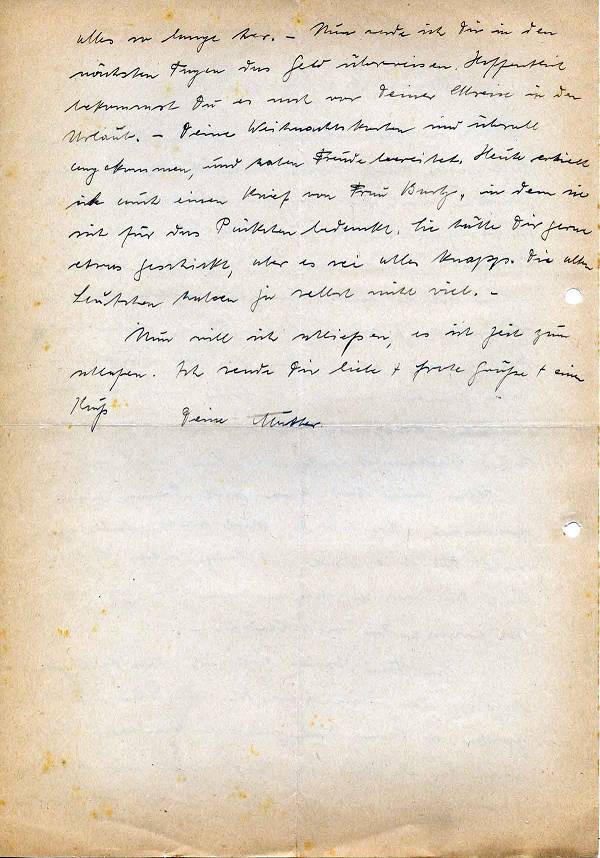 alles so lange her. – Nun werde ich Dir in den
nächsten Tagen das Geld überweisen. Hoffentlich
bekommst Du es noch vor Deiner Abreise in den
Urlaub. – Deine Weihnachtskarten sind überall
angekommen, und haben Freude bereitet. Heute erhielt
ich auch einen Brief von Frau in dem sie
sich für das Päckchen bedankt. Sie hätte Dir gerne
etwas geschickt, aber es sei alles knapp. Die alten
Leutchen haben ja selbst nicht viel. –
Nun will ich schließen, es ist Zeit zum
schlafen. Ich sende Dir liebe + frohe Grüße + einen
Kuß Deine Mutter.